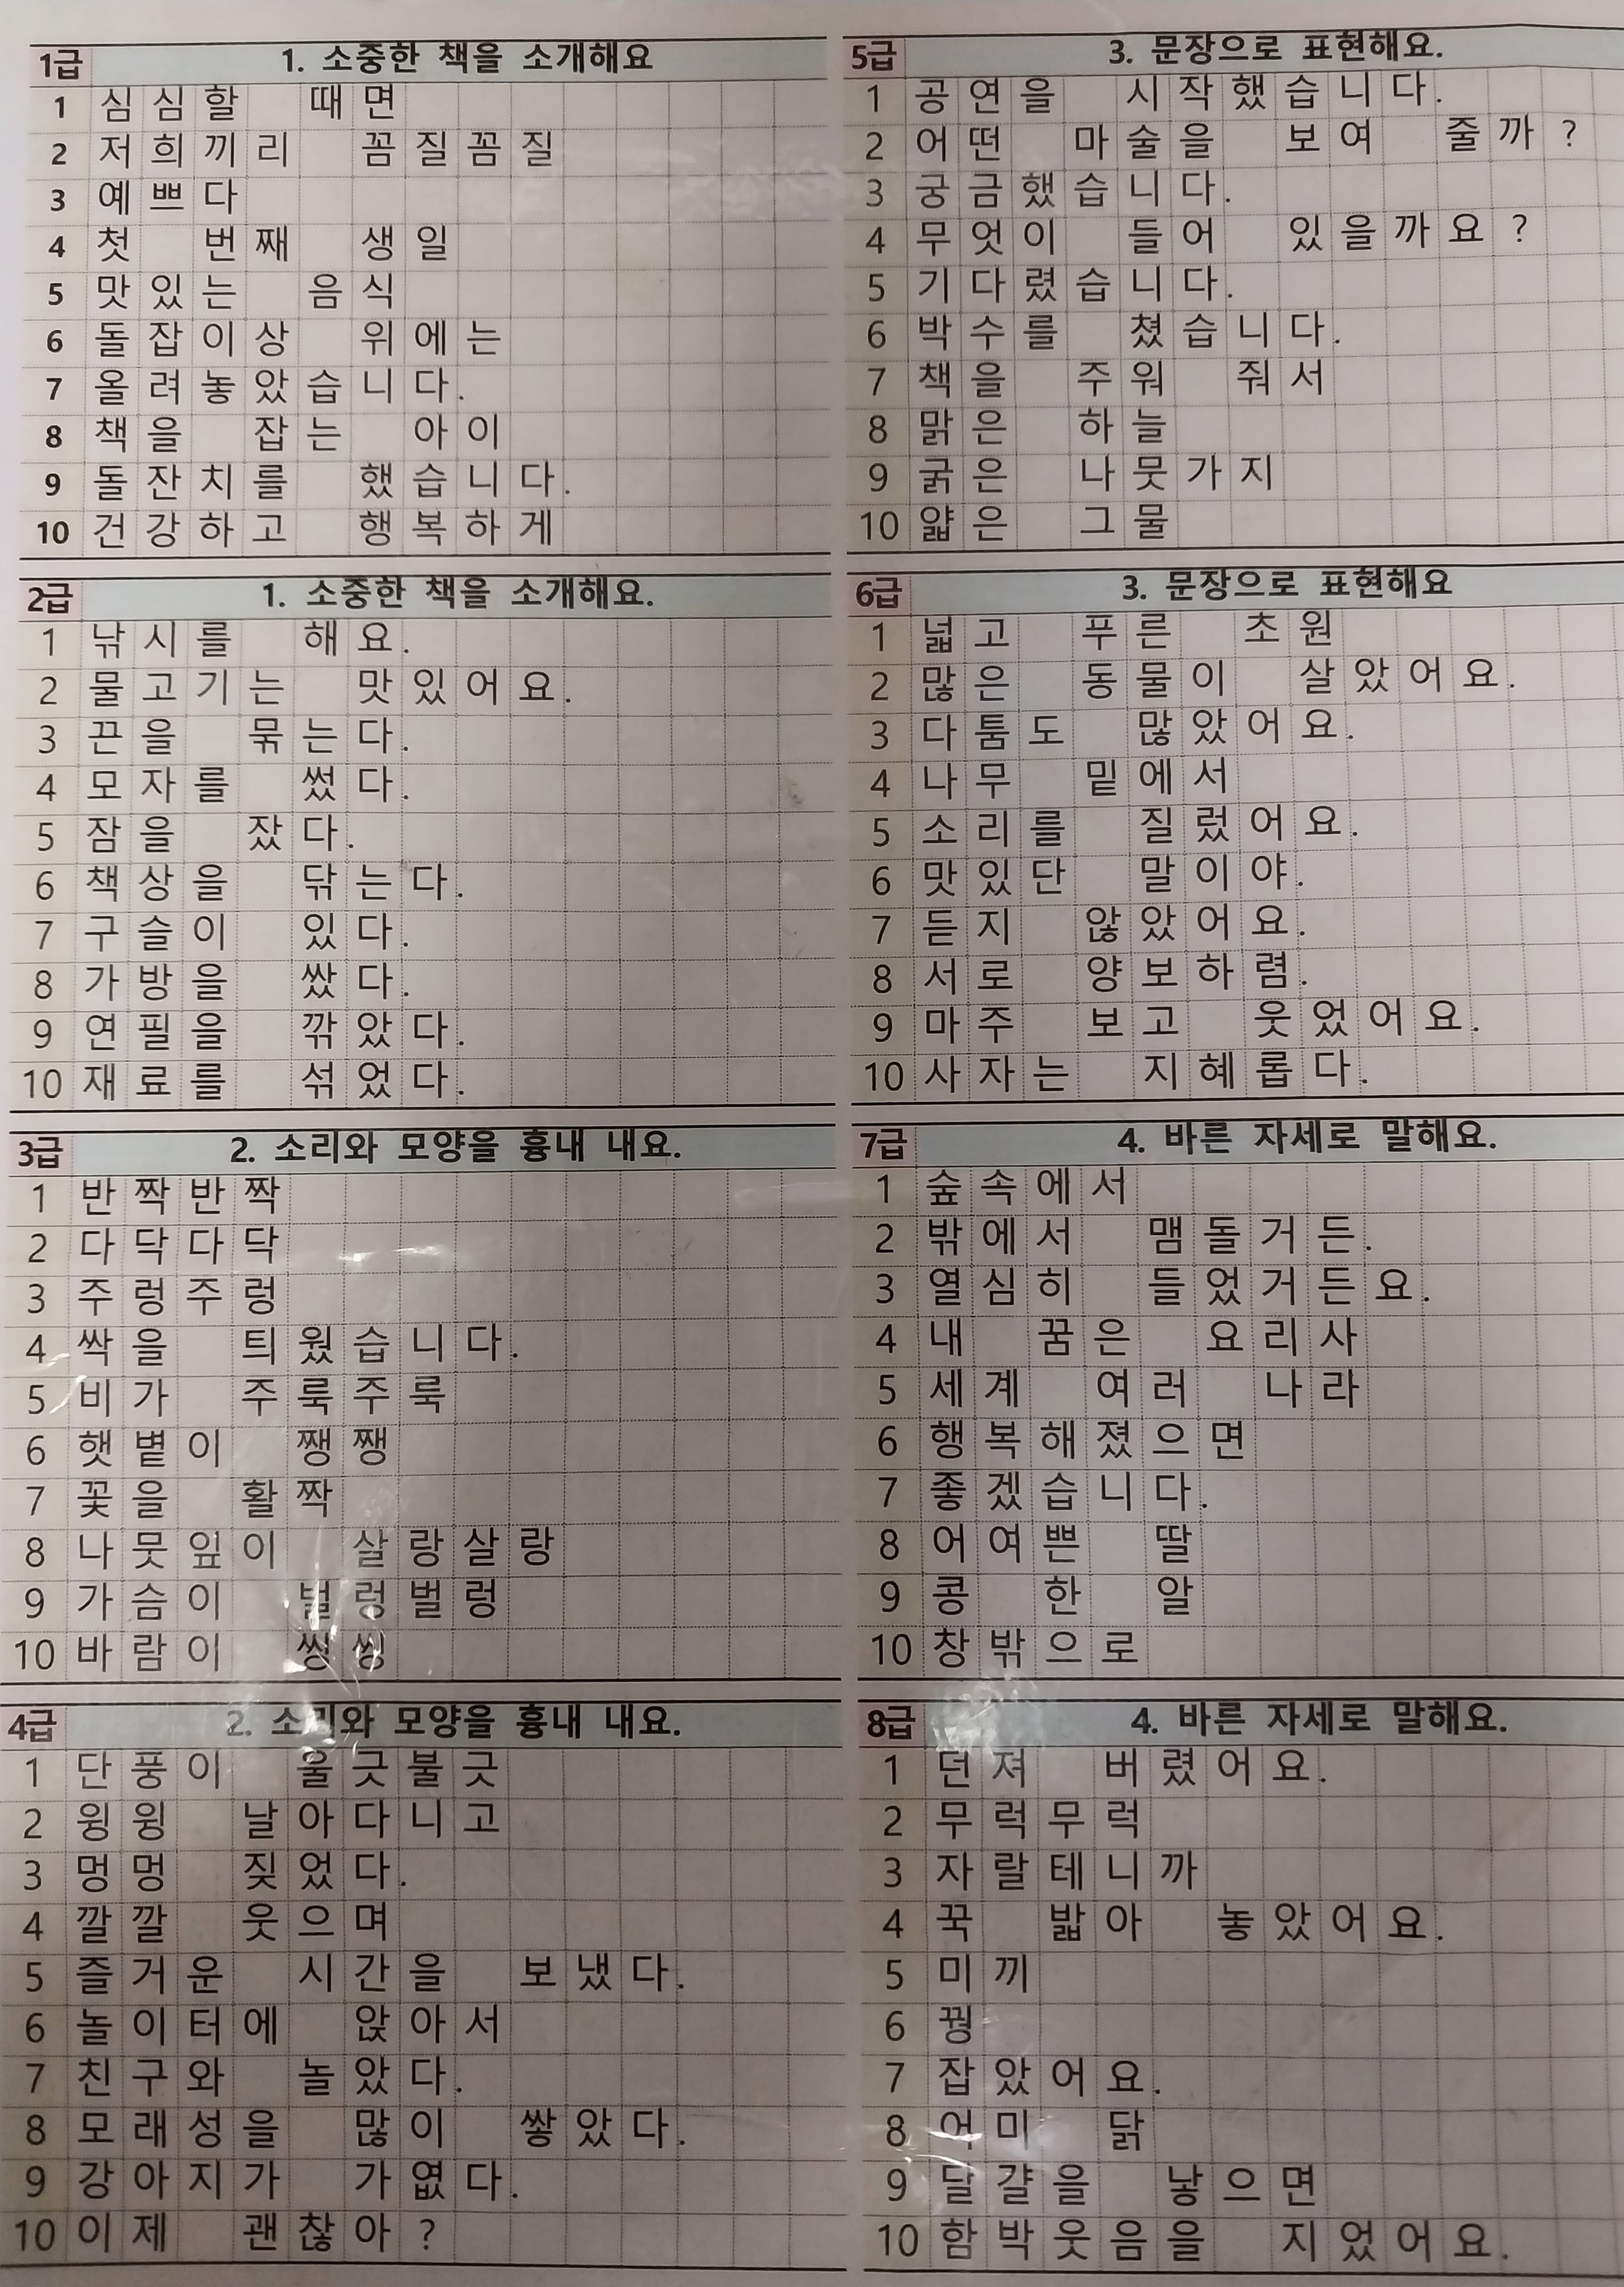 1급 1. 소중한 책을 소개해요
1 심심할 때면
2 저희끼리 꼼질꼼질
3 예쁘다
4 첫 번째 생일
5 맛있는 음식
6 돌잡이상 위에는
7 올려놓았습니다.
8 책을 잡는 아이
9 돌잔치를 했습니다.
10 건강하고 행복하게
2급 1. 소중한 책을 소개해요.
1 낚시를 해요.
2 물고기는 맛있어요.
3 끈을 묶는다.
4 모자를 썼다.
5 잠을 잤다.
6 책상을 닦는다.
7 구슬이 있다.
8 가방을 쌌다.
9 연필을 깎았다.
10 재료를 섞었다.
3급 2. 소리와 모양을 흉내 내요.
1 반짝반짝
2 다닥다닥
3 주렁주렁
4 싹을 틔웠습니다.
5 비가 주룩주룩
6 햇볕이 쨍쨍
7 꽃을 활짝
8 나뭇잎이 살랑살랑
9 가슴이 벌렁벌렁
10 바람이 씽씽
4급 2. 소리와 모양을 흉내 내요.
1 단풍이 울긋불긋
2 윙윙 날아다니고
3 멍멍 짖었다.
4 깔깔 웃으며
5 즐거운 시간을 보냈다.
6 놀이터에 앉아서
7 친구와 놀았다.
8 모래성을 많이 쌓았다.
9 강아지가 가엾다.
10 이제 괜찮아?
5급 3. 문장으로 표현해요.
1 공연을 시작했습니다.
2 어떤 마술을 보여 줄까?
3 궁금했습니다.
4 무엇이 들어 있을까요?
5 기다렸습니다.
6 박수를 쳤습니다.
7 책을 주워 줘서
8 맑은 하늘
9 굵은 나뭇가지
10 얇은 그물
6급 3. 문장으로 표현해요
1 넓고 푸른 초원
2 많은 동물이 살았어요.
3 다툼도 많았어요.
4 나무 밑에서
5 소리를 질렀어요.
6 맛있단 말이야.
7 듣지 않았어요.
8 서로 양보하렴.
9 마주 보고 웃었어요.
10 사자는 지혜롭다.
7급 4. 바른 자세로 말해요.
1 숲속에서
2 밖에서 맴돌거든.
3 열심히 들었거든요.
4 내 꿈은 요리사
5 세계 여러 나라
6 행복해졌으면
7 좋겠습니다.
8 어여쁜 딸
9 콩 한 알
10 창밖으로
8급 4. 바른 자세로 말해요.
1 던져 버렸어요.
2 무럭무럭
3 자랄테니까
4 꾹 밟아 놓았어요.
5 미끼
6 꿩
7 잡았어요.
8 어미 닭
9 달걀을 낳으면
10 함박웃음을 지었어요.